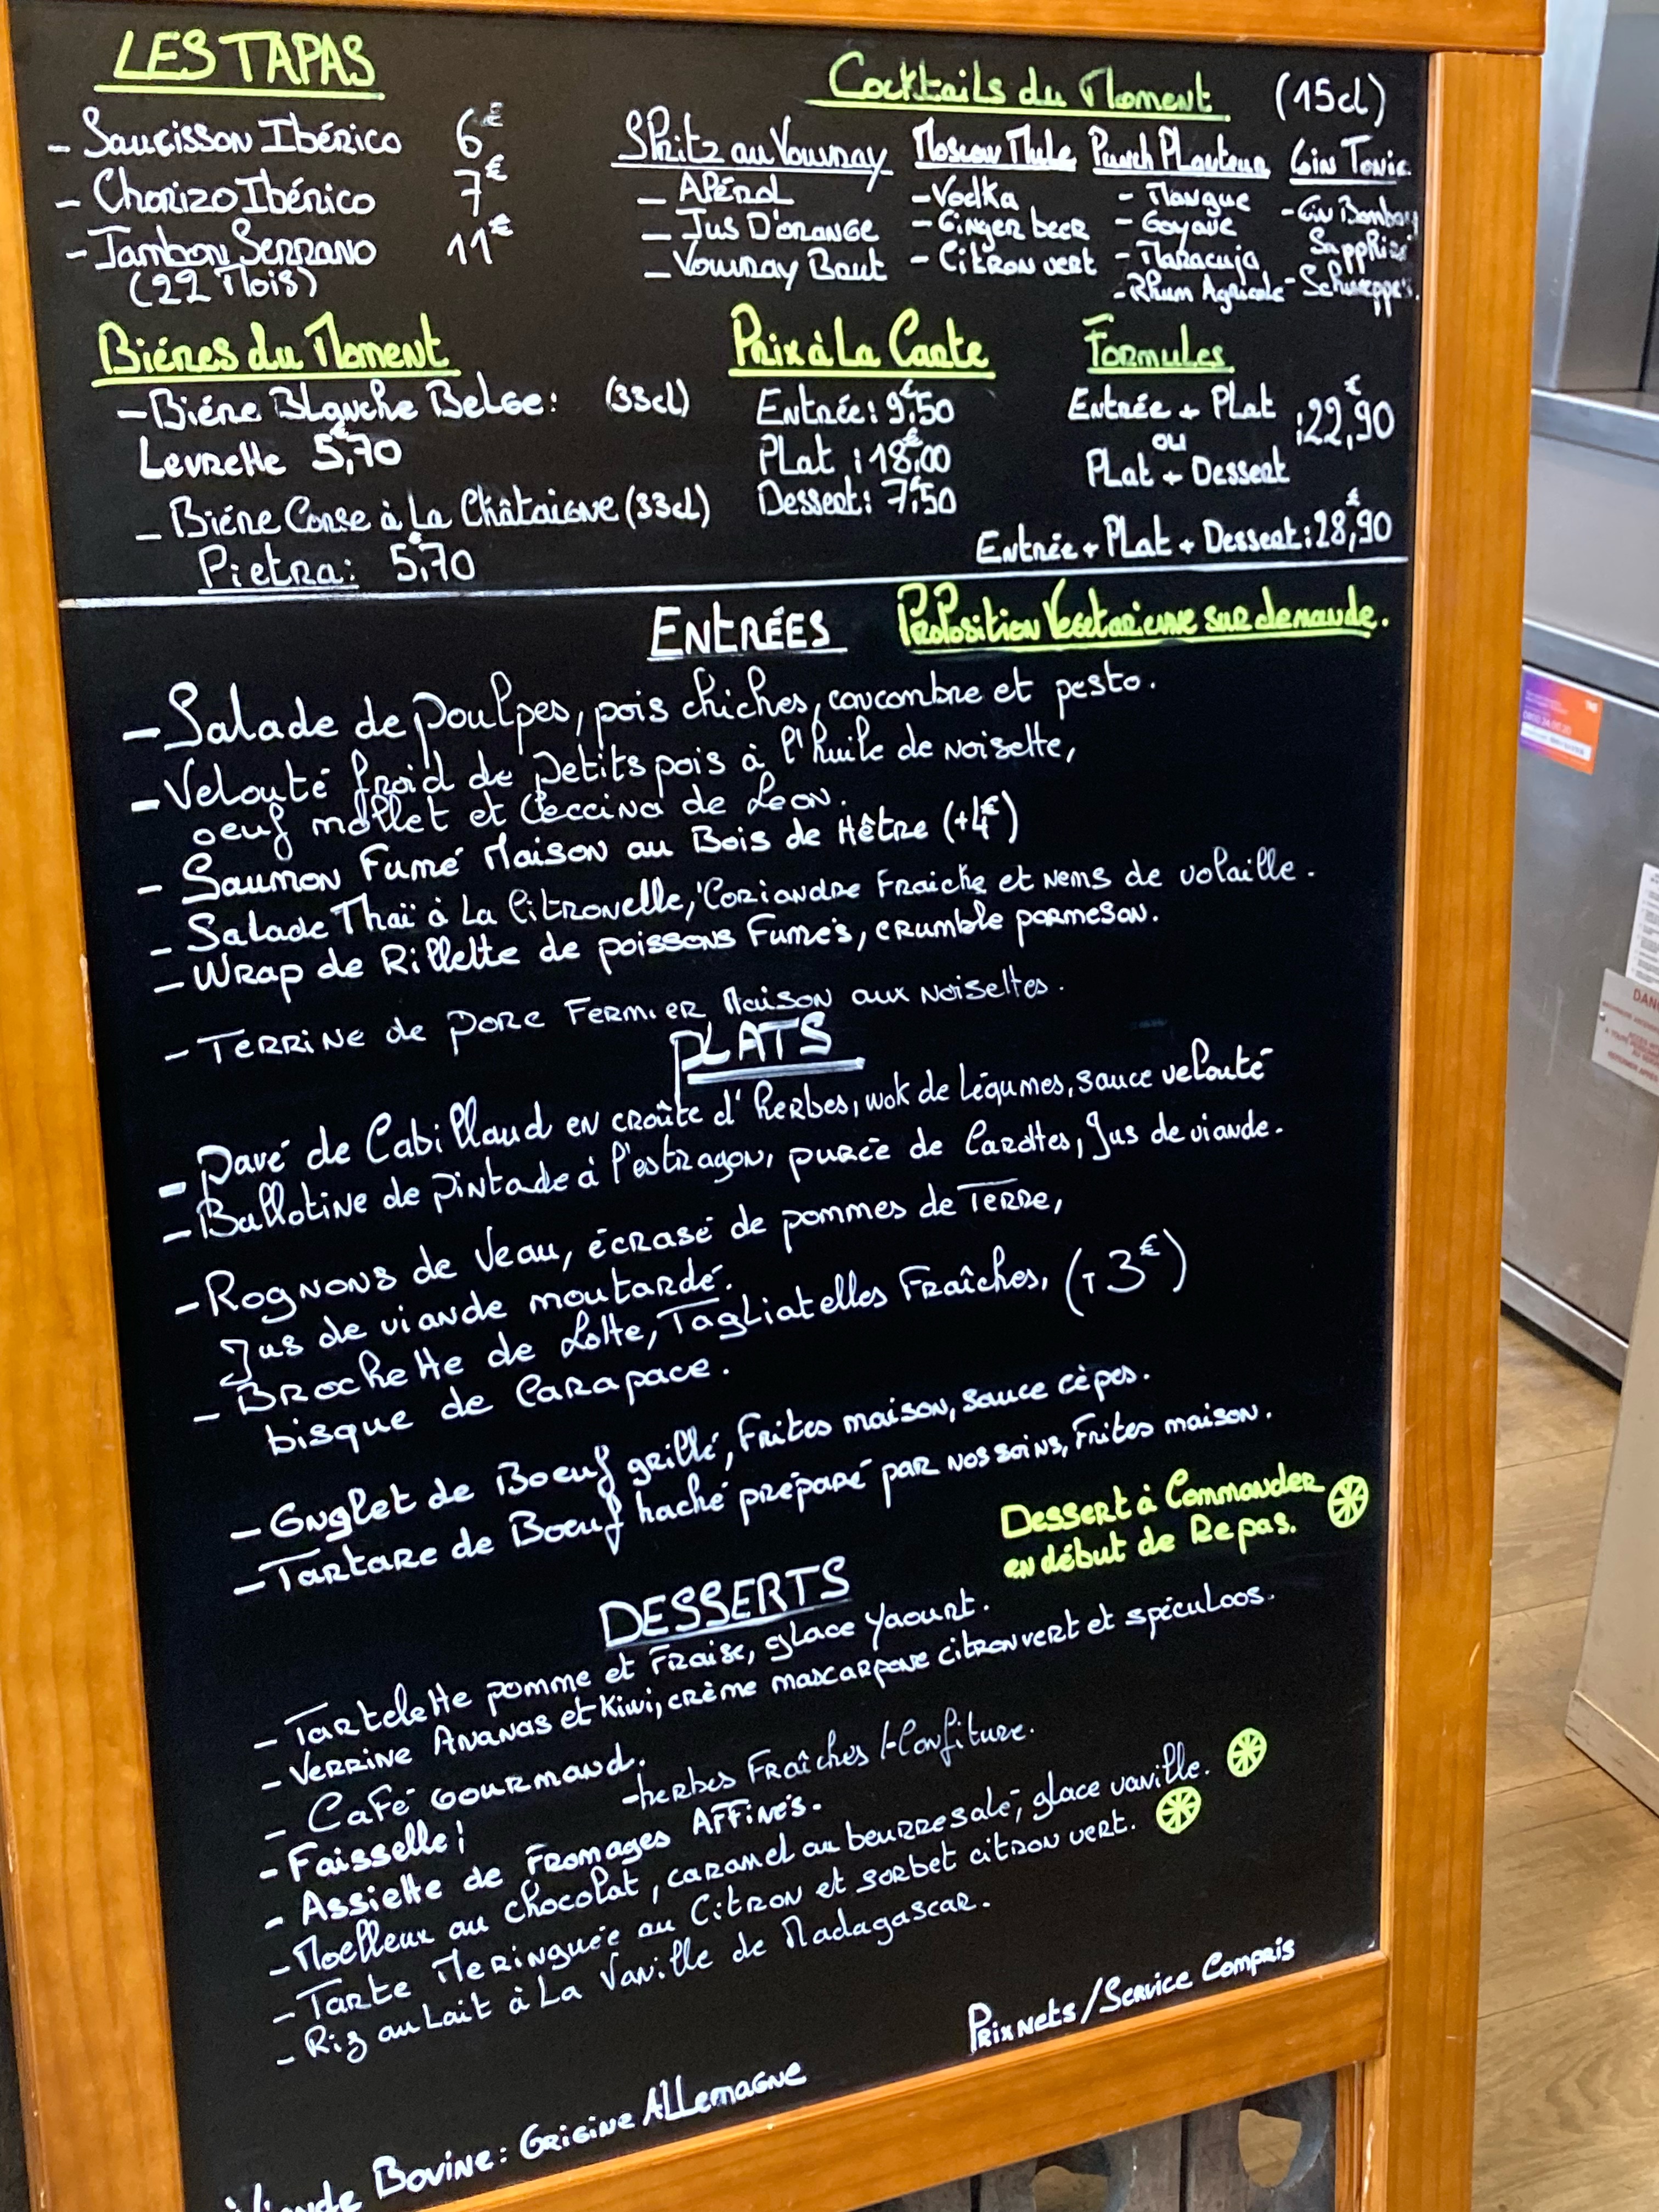 LES TAPAS
- Saucisson Ibérico 6€
- Chorizo Ibérico 7€
- Jambon Serrano 11€
(22 Mois)
Cocktails du Moment (15cl)
Spritz au Vouvray
- Apérol
- Jus D'orange
- Vouvray Brut
Moscow Mule
- Vodka
- Ginger beer
- Citron vert
Punch Planteur
- Mangue
- Goyave
- Maracuja
- Rhum Agricole
Gin Tonic
- Gin Bombay
Sapphire
- Schweppes
Biéres du Moment
- Biére Blanche Belge: (33cl)
Levrette 5,€70
- Biére Corse à La Châtaigne (33cl)
Pietra: 5,€70
Prix à La Carte
Entrée: 9,€50
Plat : 18,€00
Dessert: 7,€50
Formules
Entrée + Plat
ou :22,€90
Plat + Dessert
Entrée + Plat + Dessert: 28,€90
ENTRÉES
Proposition Vegetarienne sur demande.
- Salade de poulpes, pois chiches, concombre et pesto.
- Velouté froid de petits pois à l'huile de noisette,
oeuf mollet et Ceccina de Leon.
- Saumon Fumé Maison au Bois de Hêtre (+4€)
- Salade Thaï à La Citronelle, Coriandre Fraiche et nems de volaille.
- Wrap de Rillette de poissons Fumés, crumble parmesan.
- Terrine de porc Fermier Maison aux noisettes.
PLATS
- Pavé de Cabillaud en croûte d'herbes, wok de légumes, sauce velouté
- Ballotine de pintade à l'estragon, purée de Carottes, Jus de viande.
- Rognons de veau, écrasé de pommes de Terre,
Jus de viande moutardé.
- Brochette de Lotte, Tagliatelles Fraîches, (+3€)
bisque de Carapace.
- Onglet de Boeuf grillé, Frites maison, sauce cèpes.
- Tartare de Boeuf haché préparé par nos soins, Frites maison.
Dessert à Commander
en début de Repas.
DESSERTS
- Tartelette pomme et Fraise, glace yaourt.
- Verrine Ananas et Kiwi, crème mascarpone citron vert et spéculoos.
- Café Gourmand.
- Faisselle: -herbes Fraîches /-Confiture.
- Assiette de Fromages Affinés.
- Moelleux au chocolat, caramel au beurre salé, glace vanille.
- Tarte Meringuée au Citron et sorbet citron vert.
- Riz au Lait à La Vanille de Madagascar.
Prix nets/Service Compris
Viande Bovine: Origine Allemagne
DAN